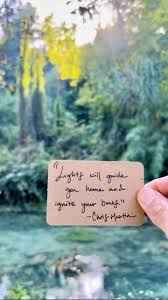 "Lights will guide
you home and
ignite your bones."
- Chris Martin